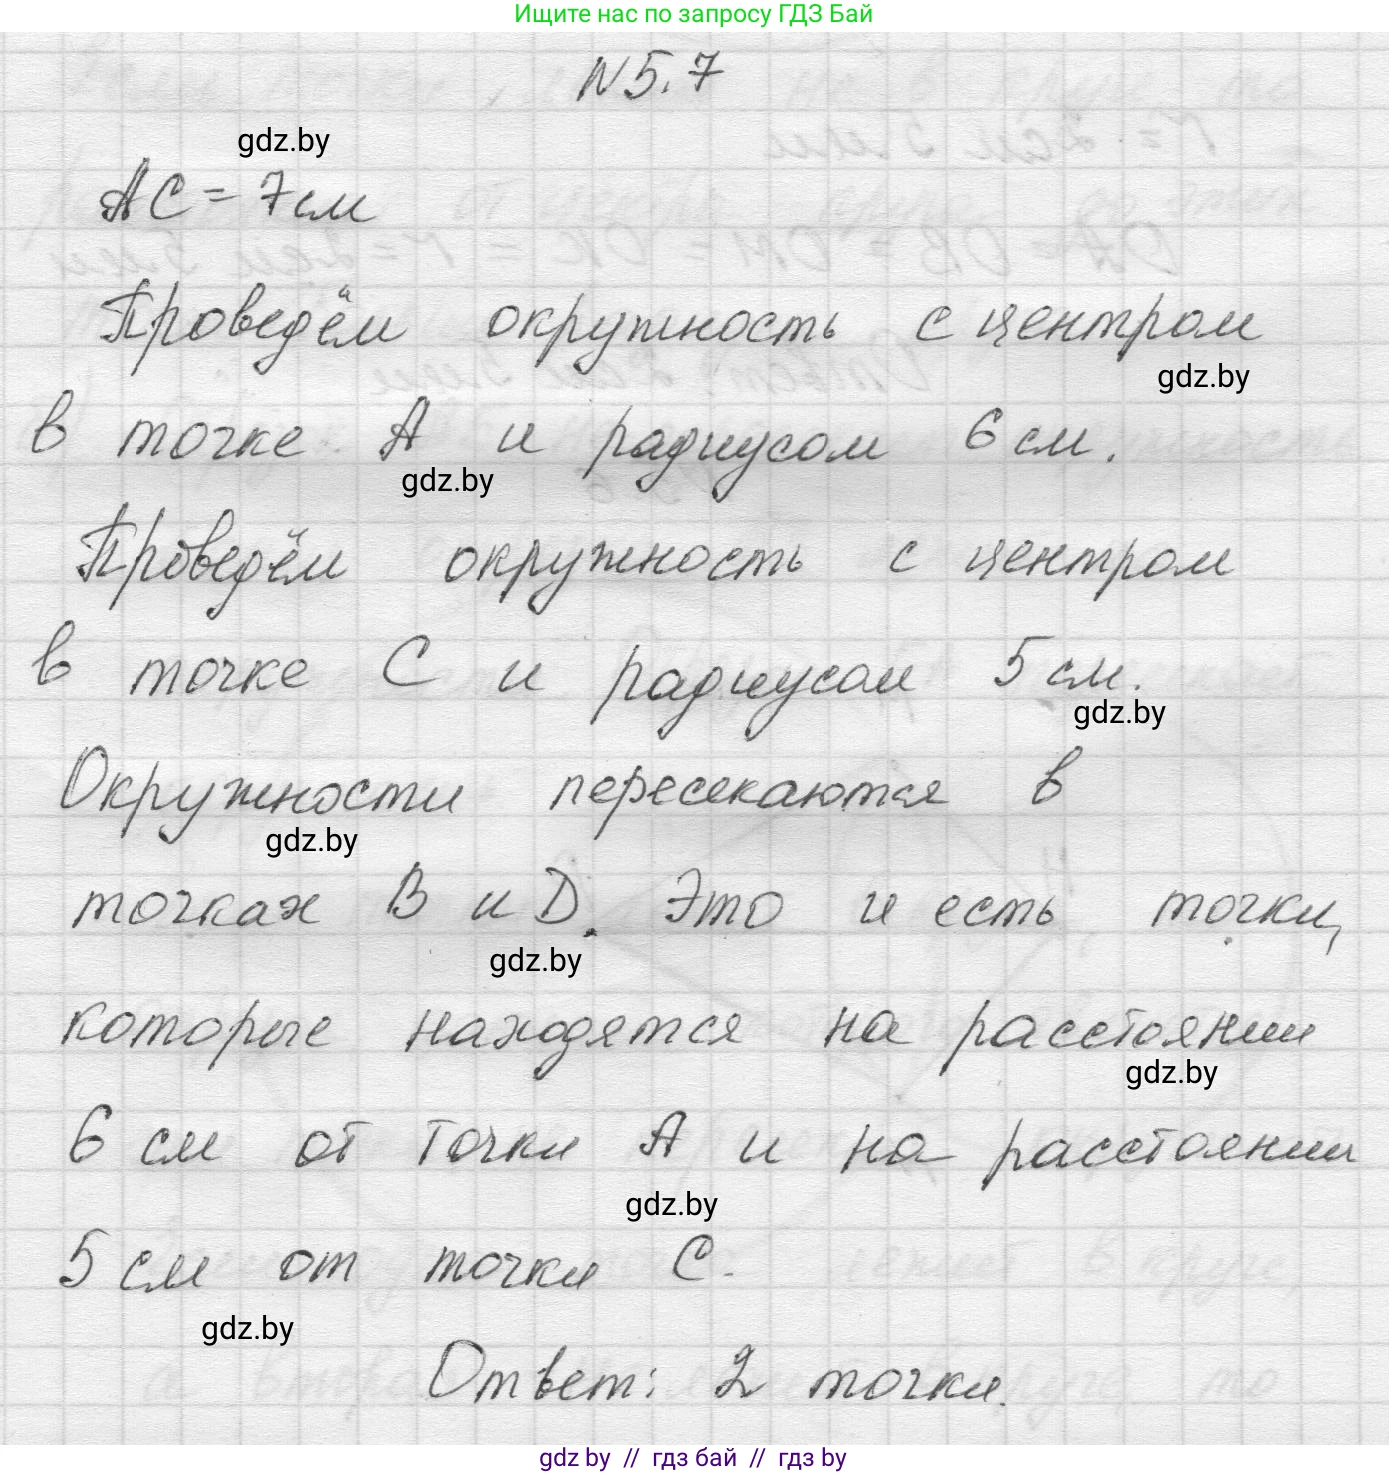 Ищите нас по запросу ГДЗ Бай
N 5.7
gdz.by
AC = 7 см
Проведём окружность с центром
gdz.by
в точке A и радиусом 6 см.
gdz.by
Проведём окружность с центром
в точке C и радиусом 5 см.
gdz.by
Окружности пересекаются в
gdz.by
точках B и D. Это и есть точки,
gdz.by
которые находятся на расстоянии
gdz.by
6 см от точки A и на расстоянии
gdz.by
5 см от точки C.
gdz.by
Ответ: 2 точки.
gdz.by // гдз бай // гдз by